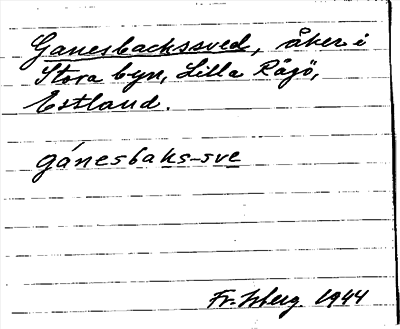 Ganesbackssved, åker i
Stora byn, Lilla Rågö,
Estland.
gánesbaks-sve
Fr. Isberg 1944